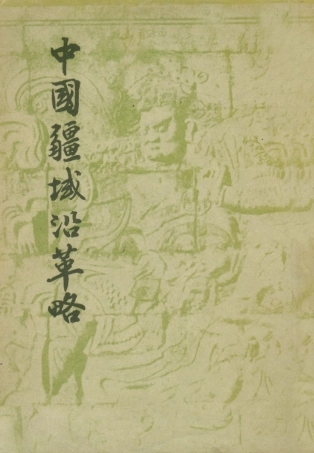 中國疆域沿革略